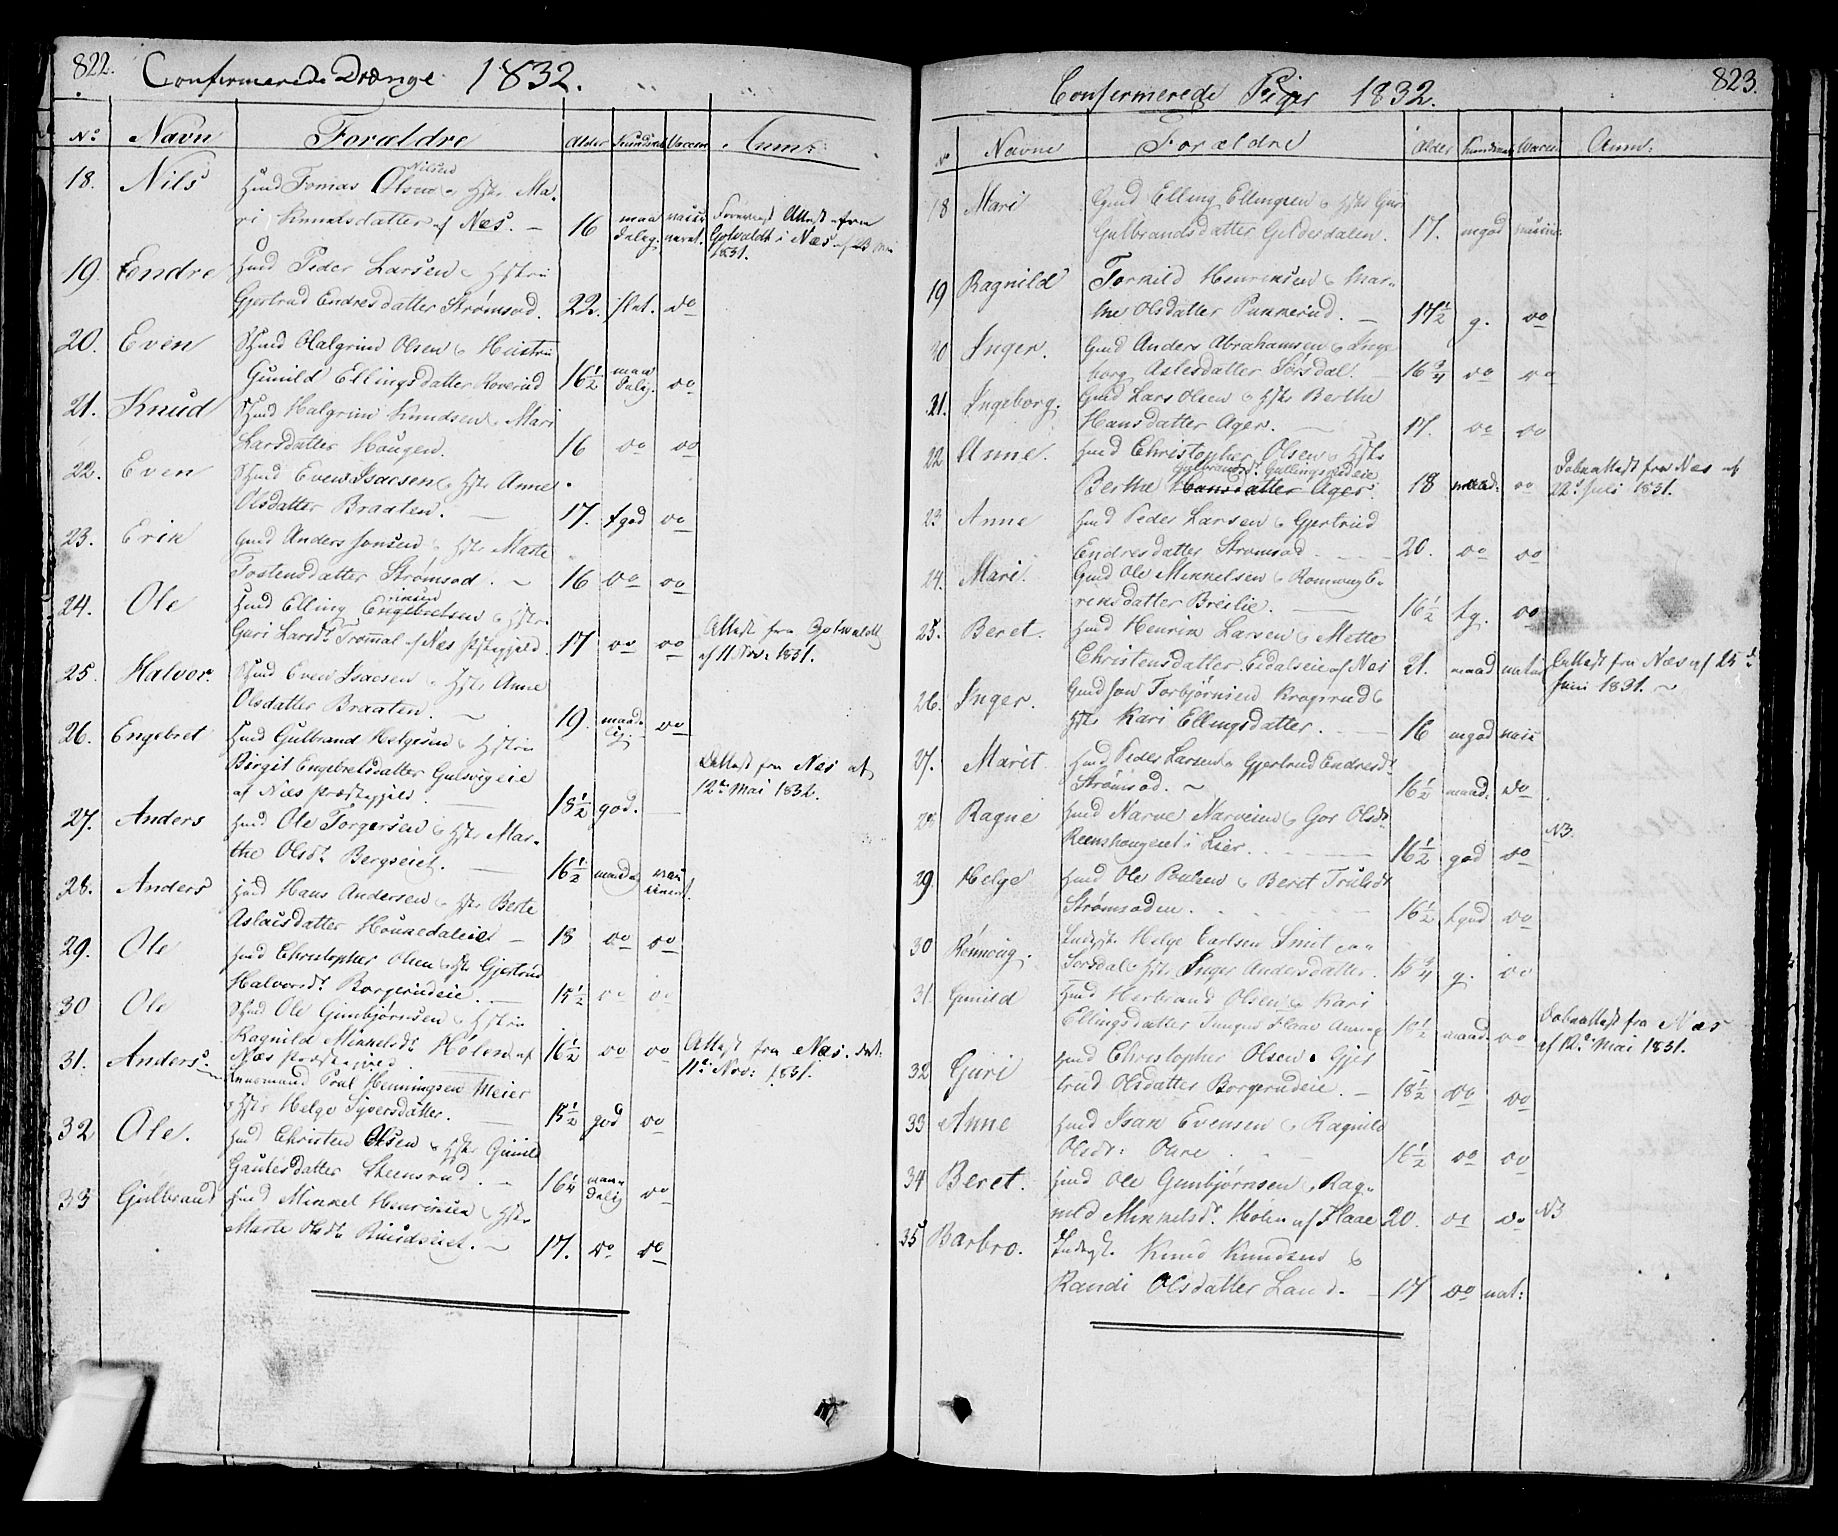 822.
Confirmerede Drænge 1832.
No Navn Forældre Alder Kundskab Vaccin Anm:
18. Nils Huusmd Tomas Olsen Nilsen & Hstr Ma-
ri Knudsdatter af Næs. 16 maadelig. Foreviist Attest fra
Gotwaldt i Næs af 23 Mai
1831.
19. Endre Huusmd Peder Larsen & Hstru
Gjertrud Endresdatter Strømsod. 22. slet. do
20. Even Huusmd Halgrim Olsen & Hustru
Gunild Ellingsdatter Roverud 16½ maadelig. do
21. Knud Huusmd Halgrim Knudsen & Mari
Larsdatter Haugen. 16 do do
22. Even Huusmd Even Isacsen & Hstr Anne
Olsdatter Braaten. 17. tgod do
23. Erik Gmd Anders Jonsen & Hstr Marte
Tostensdatter Strømsod. 16 do do
24. Ole Huusmd Elling Engebretsen & Hstr
Guri Larsdr Trommal af Næs Præstegjeld. 17 do do Attest fra Gotwaldt
af 11 Nov: 1831.
25. Halvor. Huusmd Even Isacsen & Hstr Anne
Olsdatter Braaten. 19. maadelig. do
26. Engebret Huusmd Gulbrand Helgesen & Hstru
Birgit Engebretsdatter Gulsvigeie
af Næs Præstegjeld. 18½ god. Attest fra Næs af
12te Mai 1832.
27. Anders Huusmd Ole Torgersen & Hstr Mar-
the Olsdr Bergseiet. 16½ maadel
28. Anders Huusmd Hans Andersen & Hstr Berte
Aslaksdatter 18 do do
29. Ole Huusmd Christopher Olsen & Hstr Gjertrud
Halvorsdr Borgerudeie. 15½ do do
30 Ole Huusmd Ole Gunbjørnsen & Hstru
Ragnild Mikkelsdr Hølen af
Næs Præstegjeld. 16½ do do Attest fra Næs. dat:
11te Nov: 1831.
31. Anders. Poul Henningsen Meier
& Hstr Helge Syversdatter. 15½ god do
32 Ole. Huusmd Christen Olsen & Hstr Gunild
Gautesdatter Steensrud. 16¼ maadelig do
33 Gulbrand Huusmd Mikkel Henriksen & Hstr
Marte Olsdr Ruudseiet. 17. do do
823.
Confermerede Piger 1832.
No Navne Forældre Alder Kundskab Vacci Anm:
18 Mari Gmd Elling Ellingsen & Hstr Guri
Gulbrandsdatter Gildesdalen. 17. mgod
19 Ragnild Torkild Henriksen & Mar-
the Olsdatter Punnerud. 17½ g. do
20 Inger. Gmd Anders Abrahamsen & Inge
borg Aslesdatter Sørsdal. 16¾ do do
21. Ingeborg. Gmd Lars Olsen & Hstr Berthe
Hansdatter Ager. 17. do do
22 Anne. Huusmd Christopher Olsen & Hstr
Berthe Hansdatter Ager. Gulbrandsdr Gullingsrudeie 18 maad: do Døbeattest fra Næs af
22de Juli 1831.
23 Anne Huusmd Peder Larsen & Gjertrud
Endresdatter Strømsod. 20. do do
24. Mari. Gmd Ole Mikkelsen & Rønnaug E-
riksdatter Breilie. 16½ tg. do
25. Beret. Huusmd Henrik Larsen & Mette
Christensdatter Eidalseie af Næs 21. maad Attest fra Næs af 25de
Juni 1831.
26. Inger. Gmd Jon Torbjørnsen Kragsrud &
Hstr Kari Ellingsdatter. 16 mgod
27. Marit Huusmd Peder Larsen & Gjertrud Endresdr
Strømsod. 16½ maad. do
28 Ragne Huusmd Narve Narvesen & Gor Olsdr
Reenshougeiet i Lier. 16½ god do NB.
29. Helge Huusmd Ole Poulsen & Beret Trulsdr
Strømsoden. 16½ tgod do
30 Rønnaug. Helge Carlsen Smit
Sørsdal & Hstr Inger Andersdatter. 15¾ g. do
31. Gunild Huusmd Herbrand Olsen & Kari
Ellingsdatter 16½ maad. do Døbeattest fra Næs
af 12te Mai 1831.
32 Guri Huusmd Christopher Olsen & Gjer
trud Olsdatter Borgerudeie. 18½ do do
33 Anne Huusmd Isak Evensen & Ragnild
Olsdr: 16½ do do
34 Beret. Huusmd Ole Gunbjørnsen & Rag-
nild Mikkelsdr. Holen af Flaae 20. do do NB
35 Barbro. Knud Knudsen &
Randi Olsdatter Land. 17 do nat: